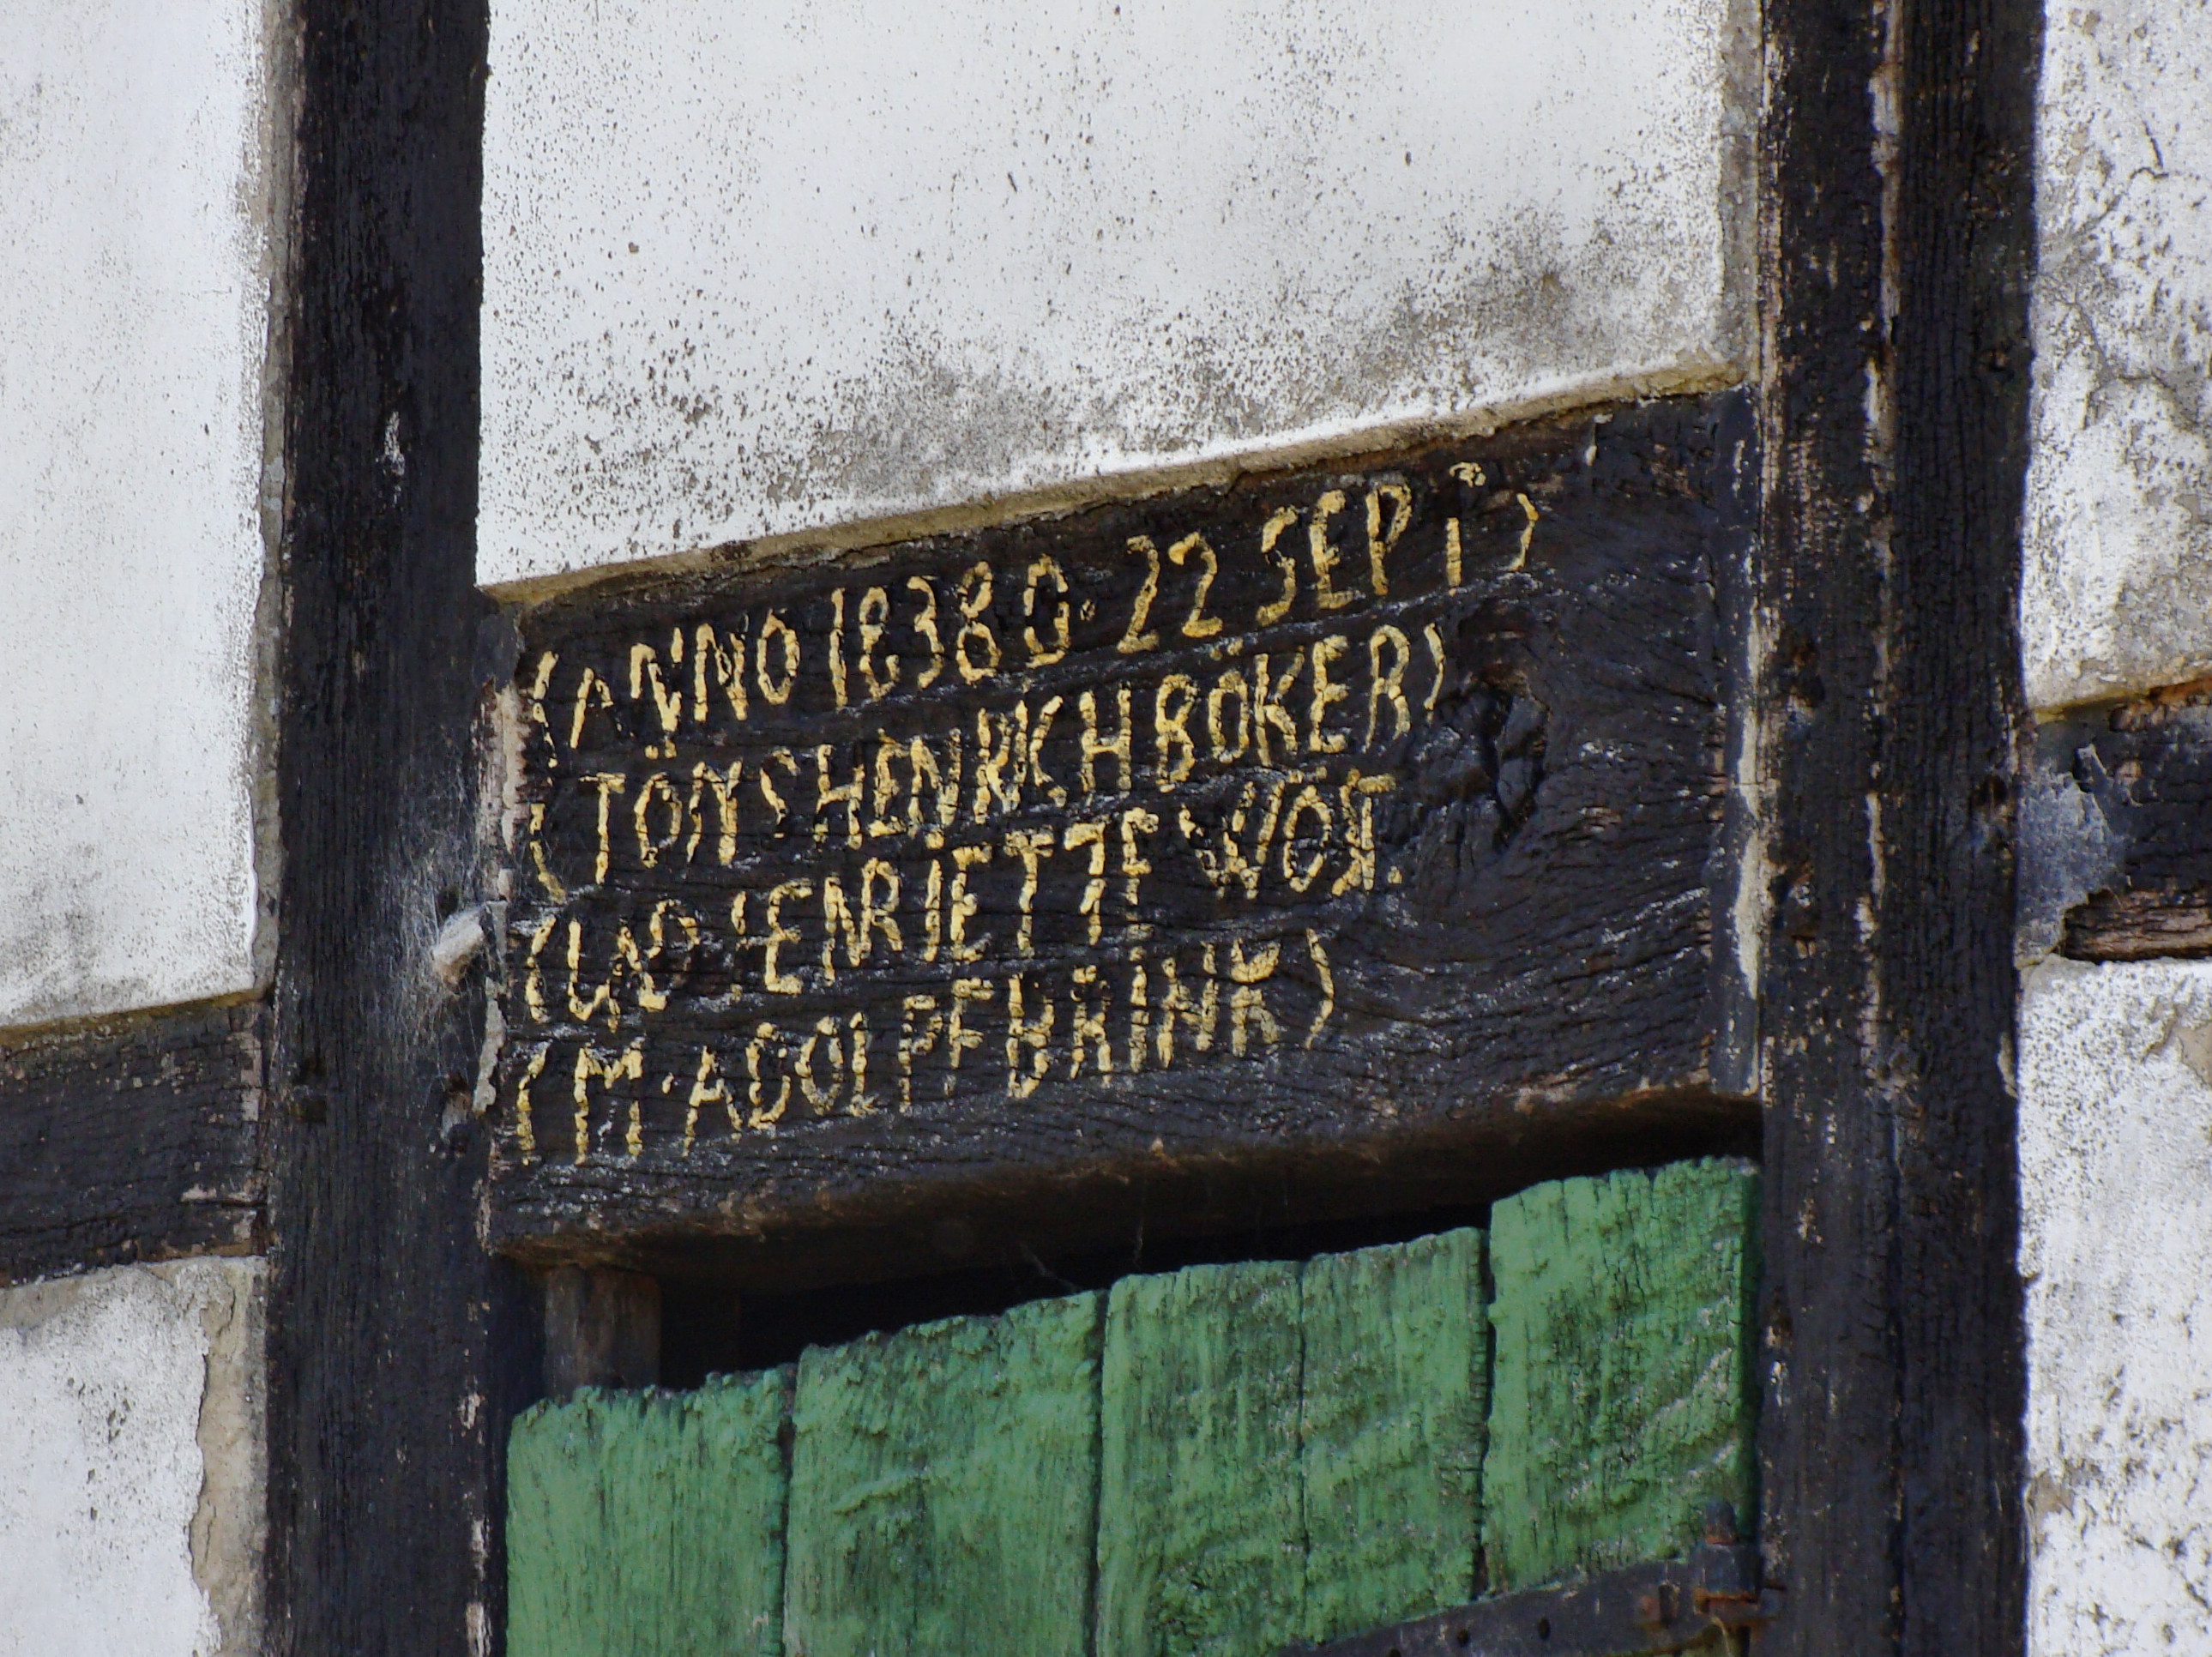 (ANNO 1838 D. 22 SEPT)
(TÖNS HENRICH BÖKER)
HENRIETTE
(M. ADOLPF BRINK)